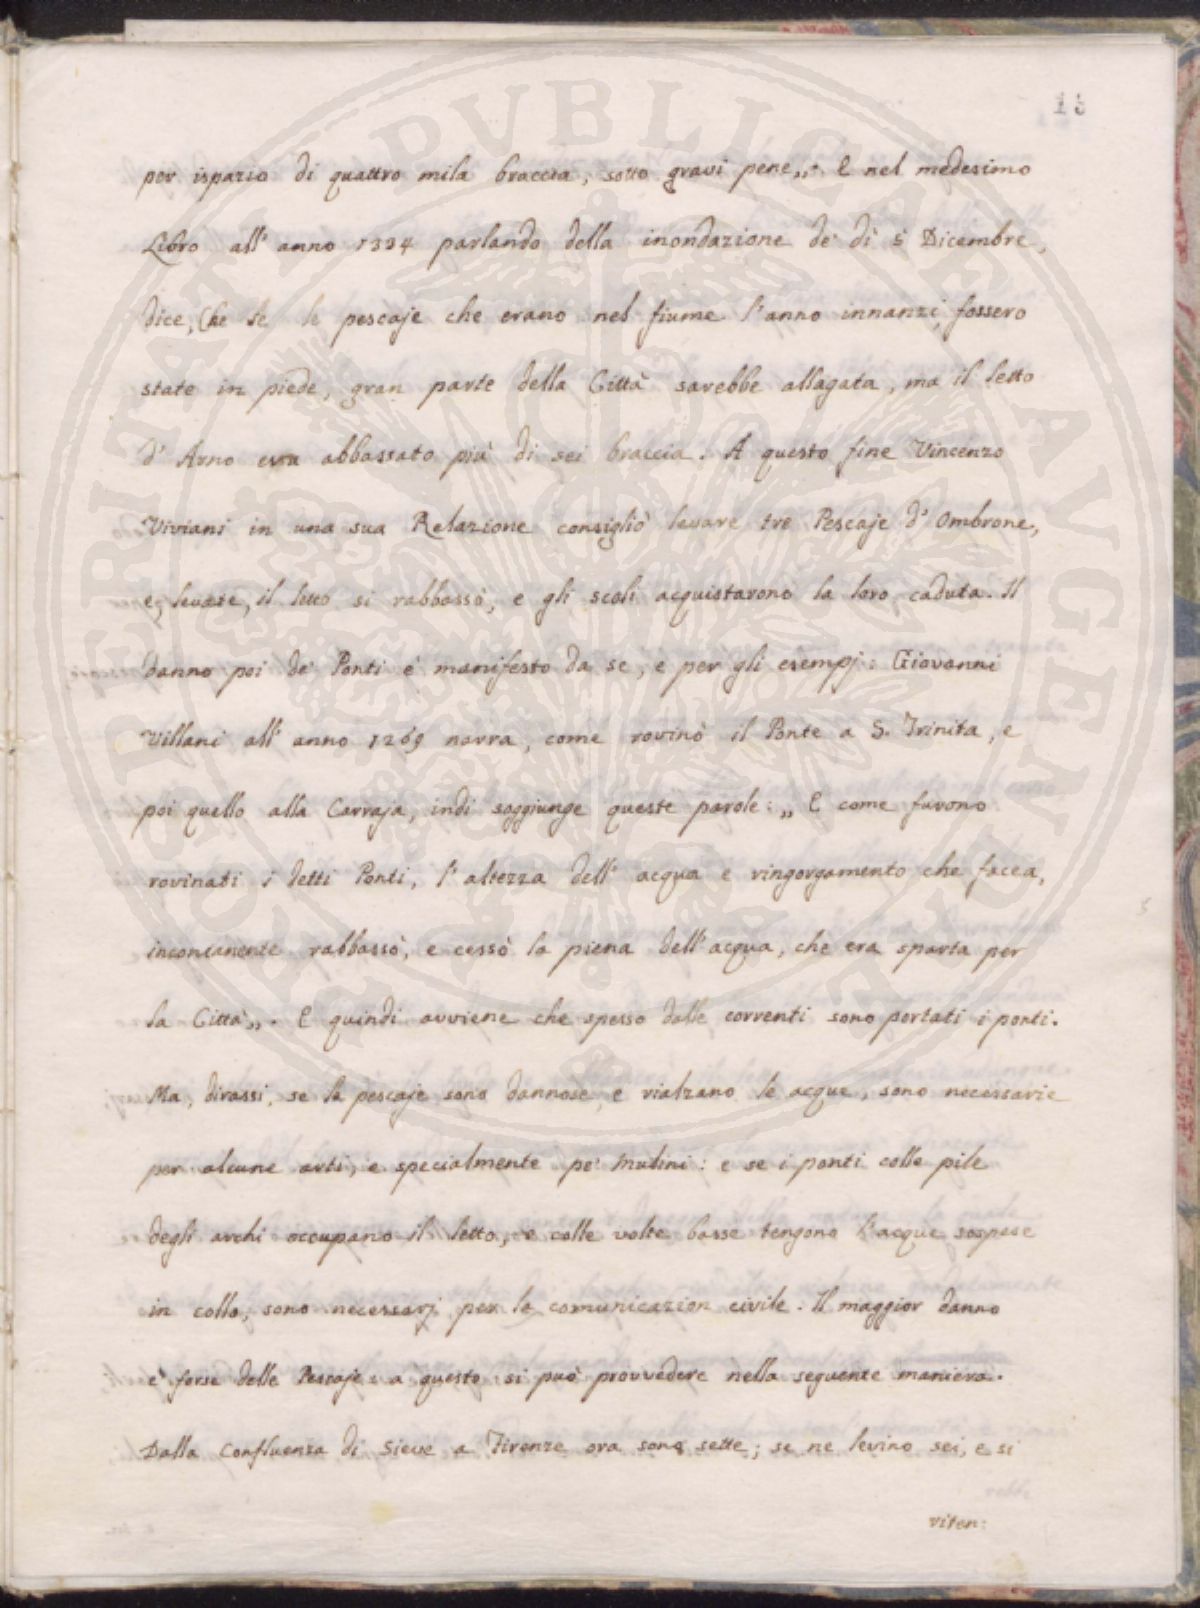 15
per ispazio di quattro mila braccia, sotto gravi pene„. E nel medesimo
Libro all' anno 1334 parlando della inondazione de' dì 5 Dicembre,
dice, Che se le pescaje che erano nel fiume l'anno innanzi, fossero
state in piede, gran parte della Città sarebbe allagata, ma il letto
d' Arno era abbassato più di sei braccia. A questo fine Vincenzo
Viviani in una sua Relazione consigliò levare tre Pescaje d' Ombrone,
e, levate, il letto si rabbassò, e gli scoli acquistarono la loro caduta. Il
danno poi de' Ponti è manifesto da se, e per gli esempj: Giovanni
Villani all' anno 1269 narra, come rovinò il Ponte a S. Trinita, e
poi quello alla Carraja, indi soggiunge queste parole: „ E come furono
rovinati i detti Ponti, l' altezza dell' acqua e ringorgamento che facea,
incontanente rabbassò, e cessò la piena dell' acqua, che era sparta per
la Città„. E quindi avviene che spesso dalle correnti sono portati i ponti.
Ma, dirassi, se le pescaje sono dannose, e rialzano le acque, sono necessarie
per alcune arti, e specialmente pe' Mulini: e se i ponti colle pile
degli archi occupano il letto, e colle volte basse tengono l'acque sospese
in collo, sono necessarj per la comunicazion civile. Il maggior danno
è forse delle Pescaje: a questo si può provvedere nella seguente maniera.
Dalla Confluenza di Sieve a Firenze ora sono sette; se ne levino sei, e si
viten:
PERITATI PVBLICAE AVGENDAE